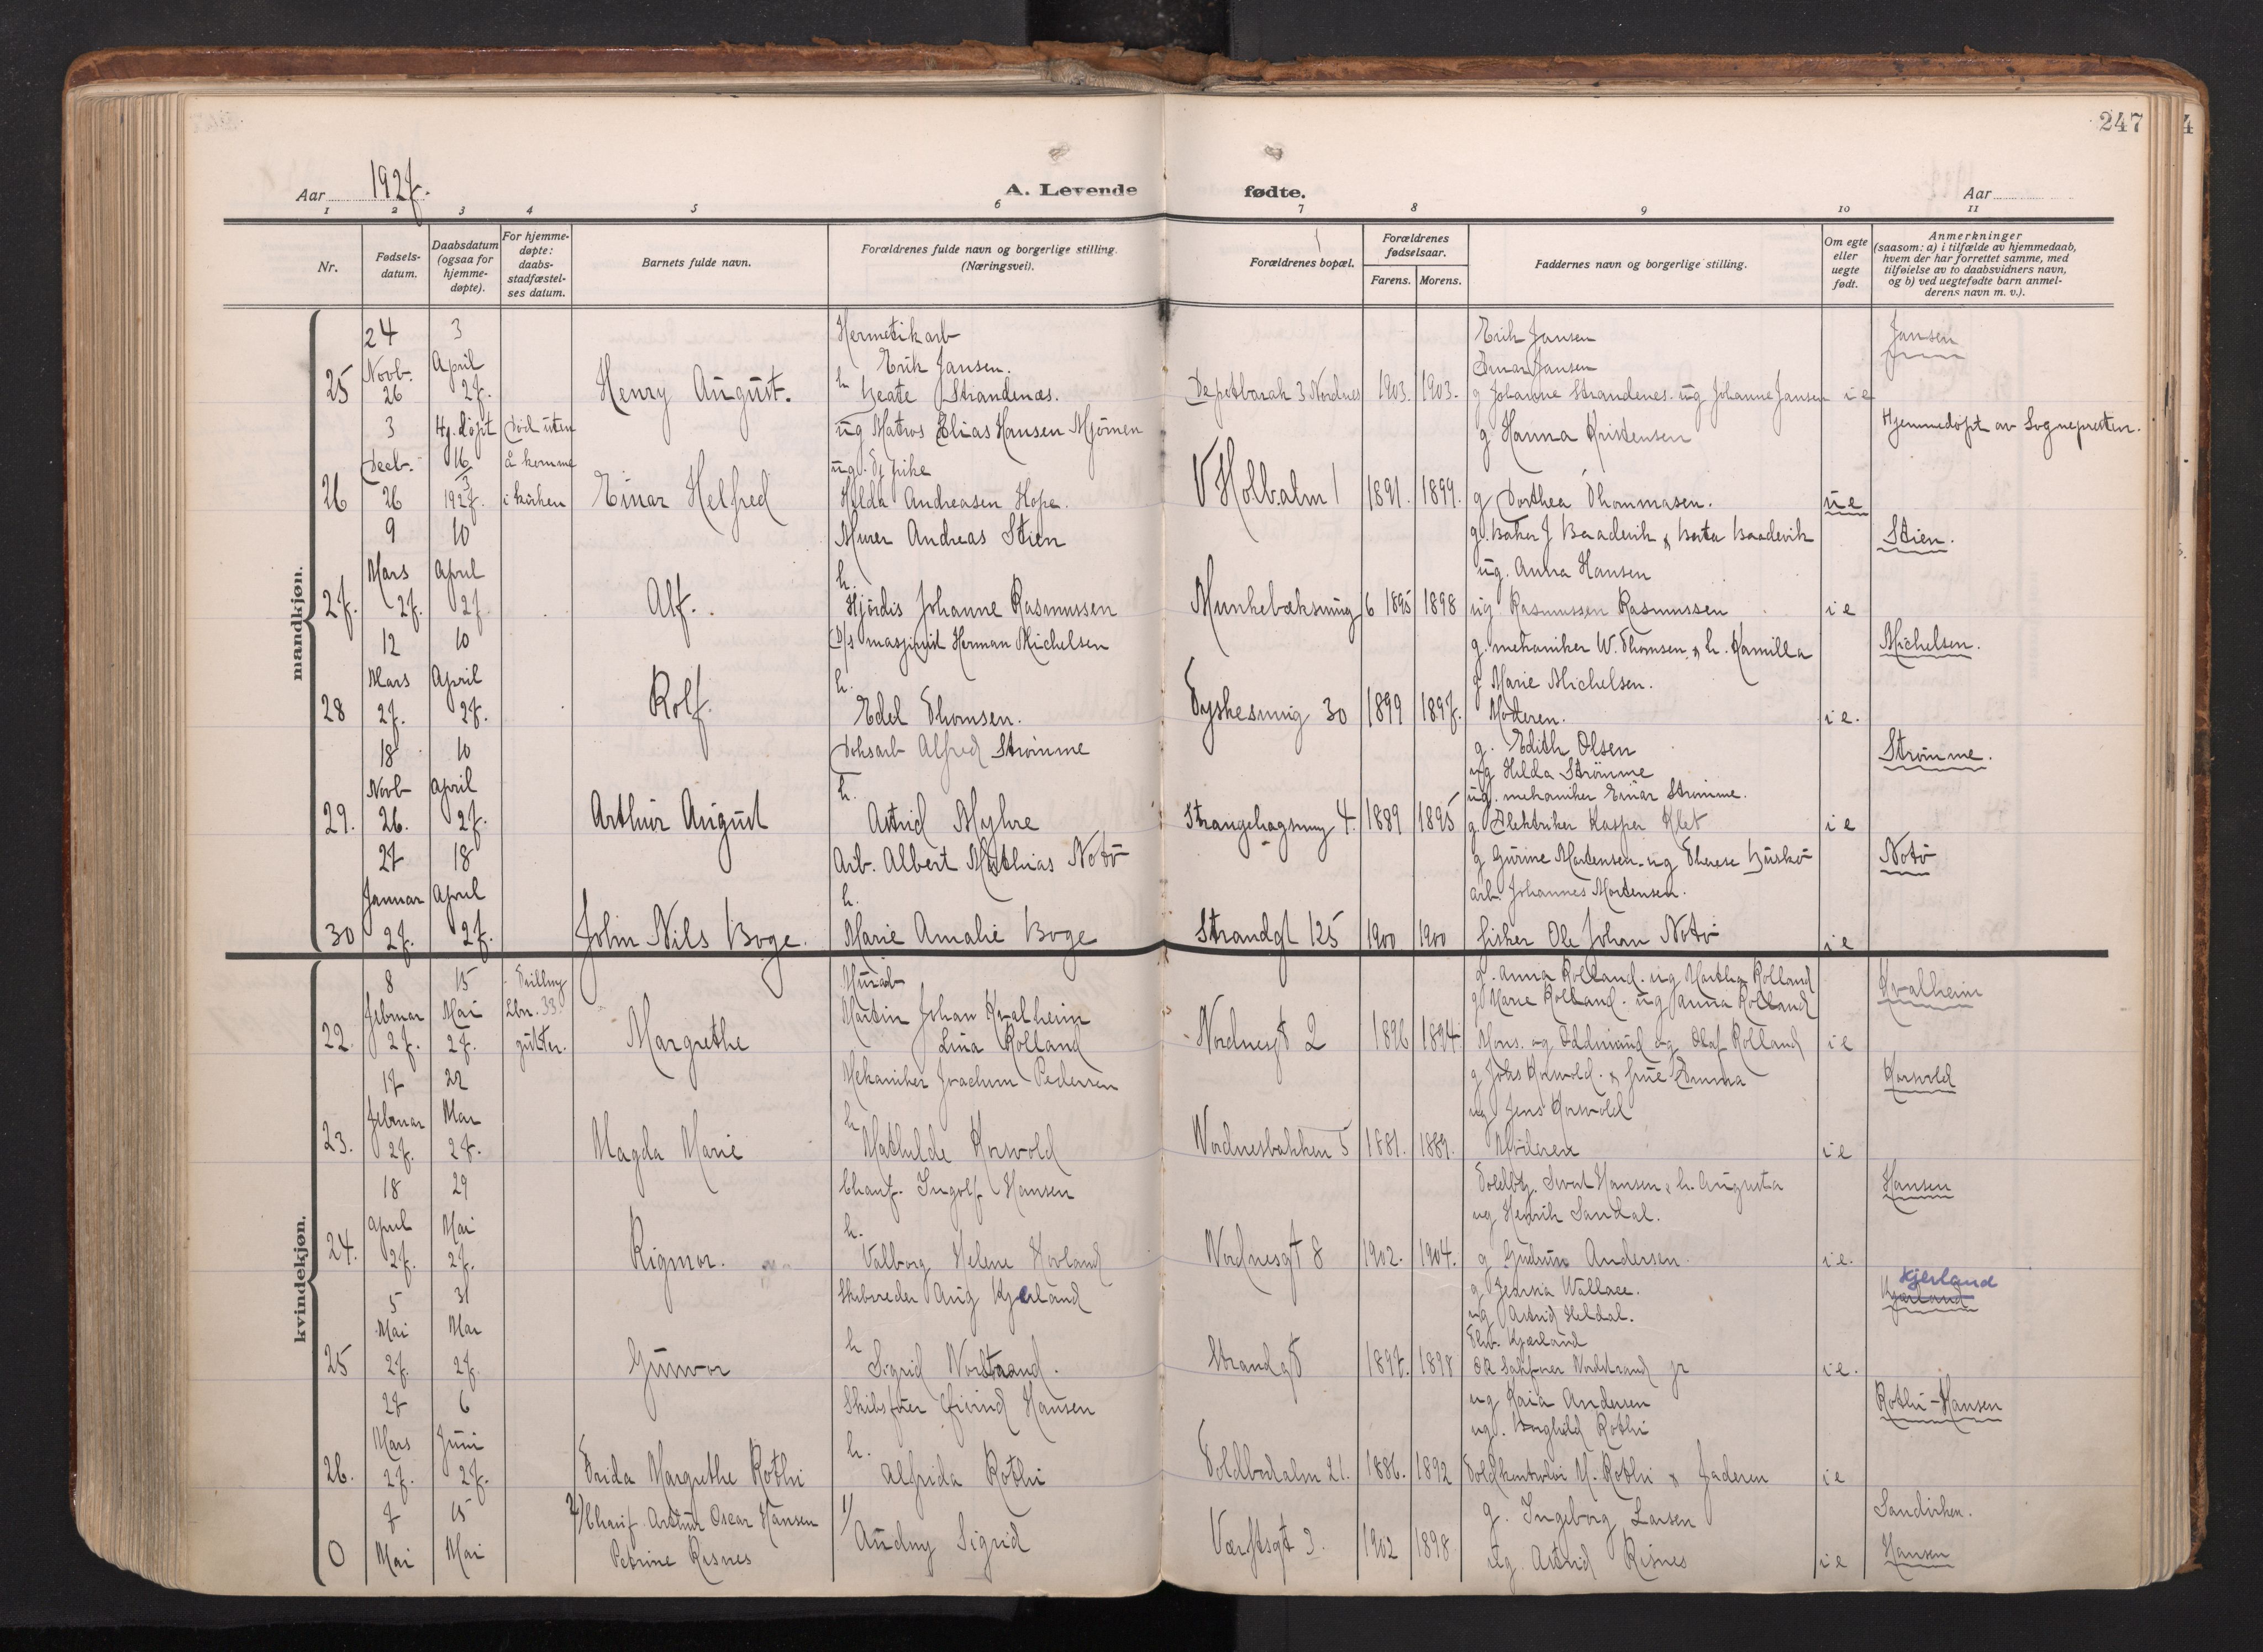 247
Aar 1927.
A. Levende fødte.
Aar
1 2 3 4 5 6 7 8 9 10 11
Nr.
Fødsels-datum.
Daabsdatum (ogsaa for hjemme-døpte).
For hjemme-døpte: daabs-stadfæstel-ses datum.
Barnets fulde navn.
Forældrenes fulde navn og borgerlige stilling. (Næringsvei).
Forældrenes bopæl.
Forældrenes fødselsaar.
Farens. Morens.
Faddernes navn og borgerlige stilling.
Om egte eller uegte født.
Anmerkninger
(saasom: a) i tilfælde av hjemmedaab,
hvem der har forrettet samme, med
tilføielse av to daabsvidners navn,
og b) ved uegtefødte barn anmel-
derens navn m. v.).
mandkjøn.
24 3 Hermetikarb Erik Jansen Jansen
Novb. April Erik Jansen. Jansen
25 26 27. Henry August. h Beate Strandenæs. Depotbarak 3 Nordnes 1903. 1903. g Johanne Strandenes. ug Johanne Jansen i e
3 Hj. døpt Død uten ug Matros Elias Hansen Mjömen g Hanna Kristensen Hjemmedöpt av Sognepresten.
Decb. 16/3 å komme ug. pike
26 26 1927. i kirken Einar Helfred Hilda Andreasen Hope. V Holbalm 1 1891. 1899. g Dorthea Thommasen. u e
9 10 Murer Andreas Stien g. Baker J Baadevik & Berta Baadevik Stien.
Mars April h. ug. Anna Hansen
27. 27. 27 Alf. Hjördis Johanne Rasmussen Munkebæksmug 6 1895 1898 ug Rasmussen Rasmussen i e
12 10 D/s maskinist Herman Michelsen g. mekaniker W. Thomsen & h. Kamilla Michelsen.
Mars April h. g Marie Michelsen.
28 27. 27. Rolf. Edel Thomsen. Tyskesmug 30 1899 1897. Moderen. i e.
18 10 Doksarb Alfred Strömme g. Edith Olsen Strømme.
Novb April h. ug Hilda Strömme
ug. mekaniker Einar Strömme.
29. 26. 27. Arthur August Astrid Myhre Strangehagsmug 4. 1889 1895 g. Elektriker Kasper Klet i e
27 18 Arb. Albert Mathias Notö g Gurine Mortensen. ug Therese Buskö Notö
Januar April h. arb. Johannes Mortensen.
30 27. 27. John Nils Boge. Marie Amalie Boge Strandgt 125 1900 1900 fisker Ole Johan Notö i e
kvindekjøn.
8 15 Tvilling Murarb g. Anna Rolland. ug Martha Rolland Kvalheim
Februar Mai Lbn. 33. Martin Johan Kvalheim g Marie Rolland. ug Anna Rolland
22. 27. 27. gutter. Margrethe Lina Rolland Nordnesgt 2 1896 1894. Mons. og Oddmund og Olaf Rolland i e
17 22 Mekaniker Joachim Pedersen g Johs Korsvold. & frue Emma Korsvold
Februar Mai h ug Jens Korsvold
23. 27. 27. Magda Marie Mathilde Korsvold Nordnesbakken 5 1881. 1889. Moderen i e
18 29 Chauf. Ingolf Hansen Toldbtj. Sivert Hansen & h. Augusta Hansen
April Mai h. ug Henrik Sandal.
24. 27. 27. Rigmor. Valborg Helene Hovland Nordnesgt 8 1902. 1904. g Gudrun Andersen. i e.
5 31 Skibsreder Aug Kjerland g Wallace. Kjerland Kjærland
Mai Mai h ug Astrid Heldal.
Kjærland
25 27. 27. Gunvor Sigrid Nordstrand. Strandgt 1897. 1898 OR Sakfører Nordstrand jr i e.
27 6 Skibsfører Eivind Hansen ug Karia Andersen Rothi-Hansen
Mars Juni h. ug. Borghild Rothi
26. 27. 27. Frida Margrethe Rothi Alfrida Rothi Toldbodalm 21. 1886. 1892 Toldkontrolør M. Rothi & Faderen i e
7 15 2) Chauf. Arthur Oscar Hansen 1) g. Ingeborg Larsen Sandviken.
0 Mai Mai Petrine Risnes Audny Sigrid Værftsgt 3. 1902 1898. ug. Astrid Risnes i e Hansen